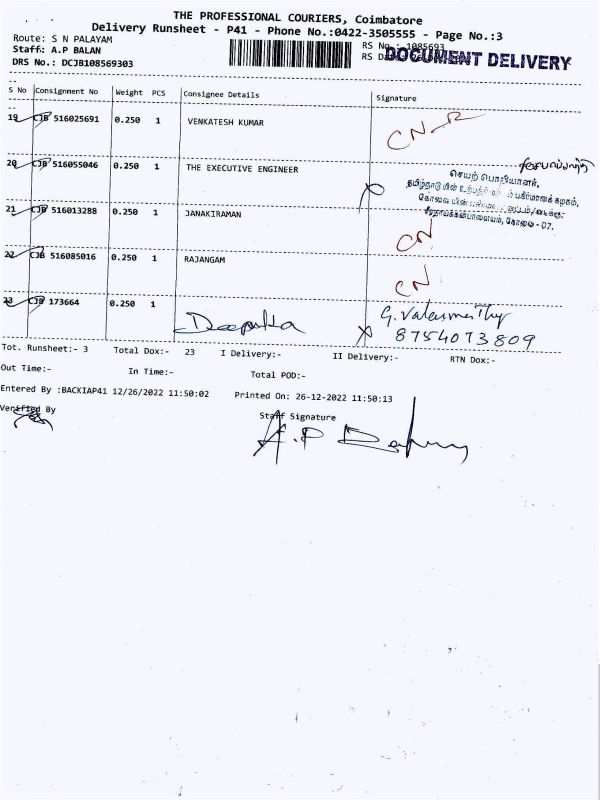 THE PROFESSIONAL COURIERS, Coimbatore
Delivery Runsheet - P41 - Phone No.:0422-3505555 - Page No.:3
Route: S N PALAYAM
Staff: A.P BALAN
DRS No.: DCJB108569303
RS No. 1085693
DOCUMENT DELIVERY
S No Consignment No Weight PCS Consignee Details Signature
19 CJB 516025691 0.250 1 VENKATESH KUMAR CN
20 CJB 516055046 0.250 1 THE EXECUTIVE ENGINEER
செயற் பொறியாளர்,
21 CJB 516013288 0.250 1 JANAKIRAMAN CN
22 CJB 516085016 0.250 1 RAJANGAM CN
23 CJB 173664 0.250 1 Deepika
8754073809
Tot. Runsheet:- 3 Total Dox:- 23 I Delivery:- II Delivery:- RTN Dox:-
Out Time:- In Time:- Total POD:-
Entered By :BACKIAP41 12/26/2022 11:50:02 Printed On: 26-12-2022 11:50:13
Verified By Staff Signature